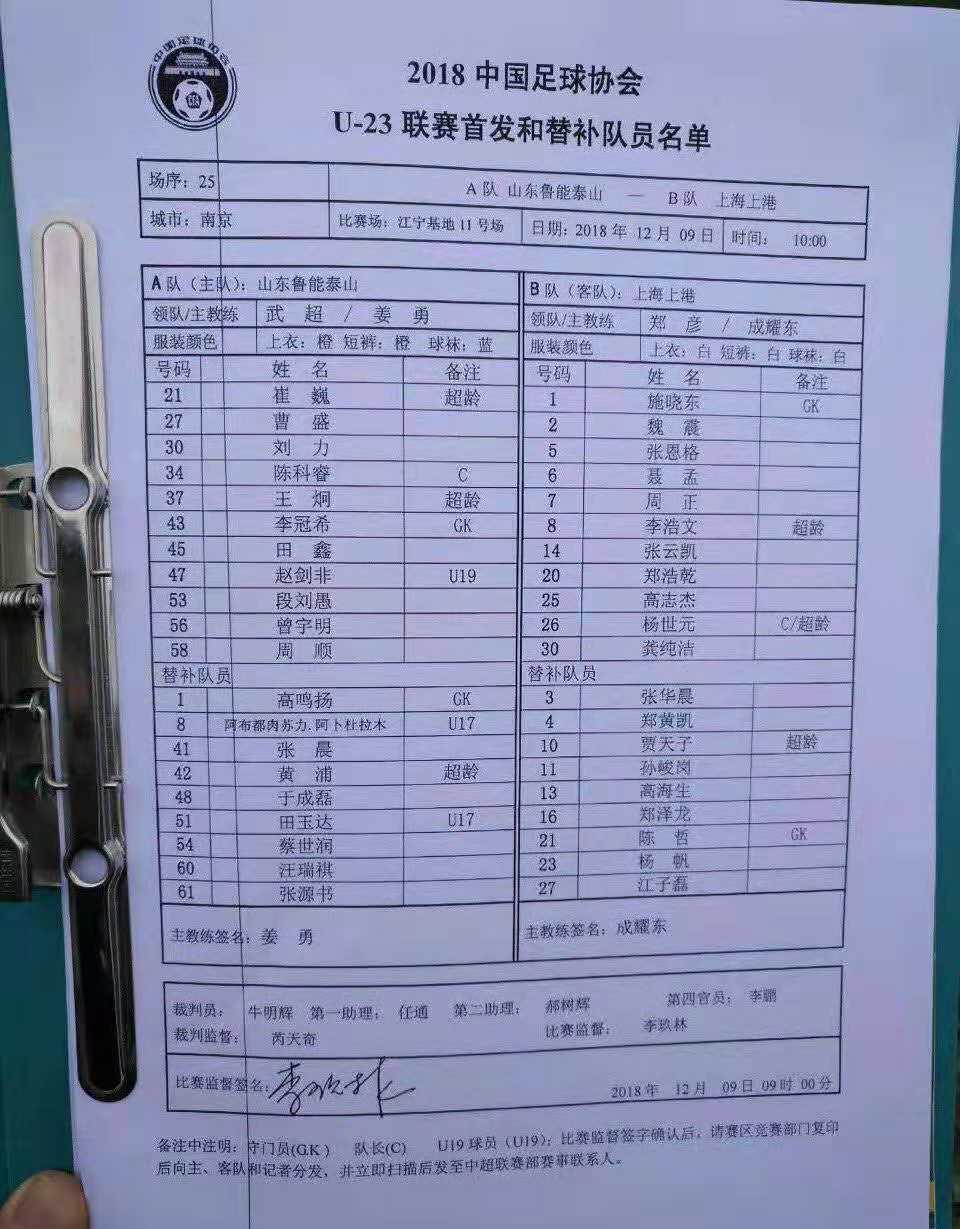 中国足球协会
2018 中国足球协会
U-23 联赛首发和替补队员名单
场序：25 A 队 山东鲁能泰山 — B 队 上海上港
城市：南京 比赛场：江宁基地 11 号场 日期：2018 年 12 月 09 日 时间： 10:00
A 队（主队）：山东鲁能泰山
领队/主教练 武 超 / 姜 勇
服装颜色 上衣：橙 短裤：橙 球袜：蓝
号码 姓 名 备注
21 崔 巍 超龄
27 曹 盛
30 刘 力
34 陈科睿 C
37 王 炯 超龄
43 李冠希 GK
45 田 鑫
47 赵剑非 U19
53 段刘愚
56 曾宇明
58 周 顺
替补队员
1 高鸣扬 GK
8 阿布都肉苏力.阿卜杜拉木 U17
41 张 晨
42 黄 浦 超龄
48 于成磊
51 田玉达 U17
54 蔡世润
60 汪瑞祺
61 张源书
主教练签名：姜 勇
B 队（客队）：上海上港
领队/主教练 郑 彦 / 成耀东
服装颜色 上衣：白 短裤：白 球袜：白
号码 姓 名 备注
1 施晓东 GK
2 魏 震
5 张恩格
6 聂 孟
7 周 正
8 李浩文 超龄
14 张云凯
20 郑浩乾
25 高志杰
26 杨世元 C/超龄
30 龚纯洁
替补队员
3 张华晨
4 郑黄凯
10 贾天子 超龄
11 孙峻岗
13 高海生
16 郑泽龙
21 陈 哲 GK
23 杨 帆
27 江子磊
主教练签名：成耀东
裁判员： 牛明辉 第一助理： 任通 第二助理： 郝树辉 第四官员： 李鹏
裁判监督： 芮天奇 比赛监督： 李玖林
比赛监督签名：李玖林 2018 年 12 月 09 日 09 时 00 分
备注中注明：守门员(GK) 队长(C) U19 球员（U19）；比赛监督签字确认后，请赛区竞赛部门复印
后向主、客队和记者分发，并立即扫描后发至中超联赛部赛事联系人。